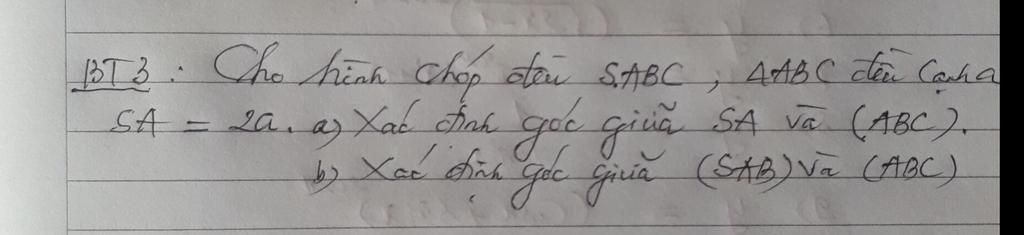 BT3: Cho hình chóp đều S.ABC, ΔABC đều cạnh a
SA = 2a. a) Xác định góc giữa SA và (ABC).
b) Xác định góc giữa (SAB) và (ABC)